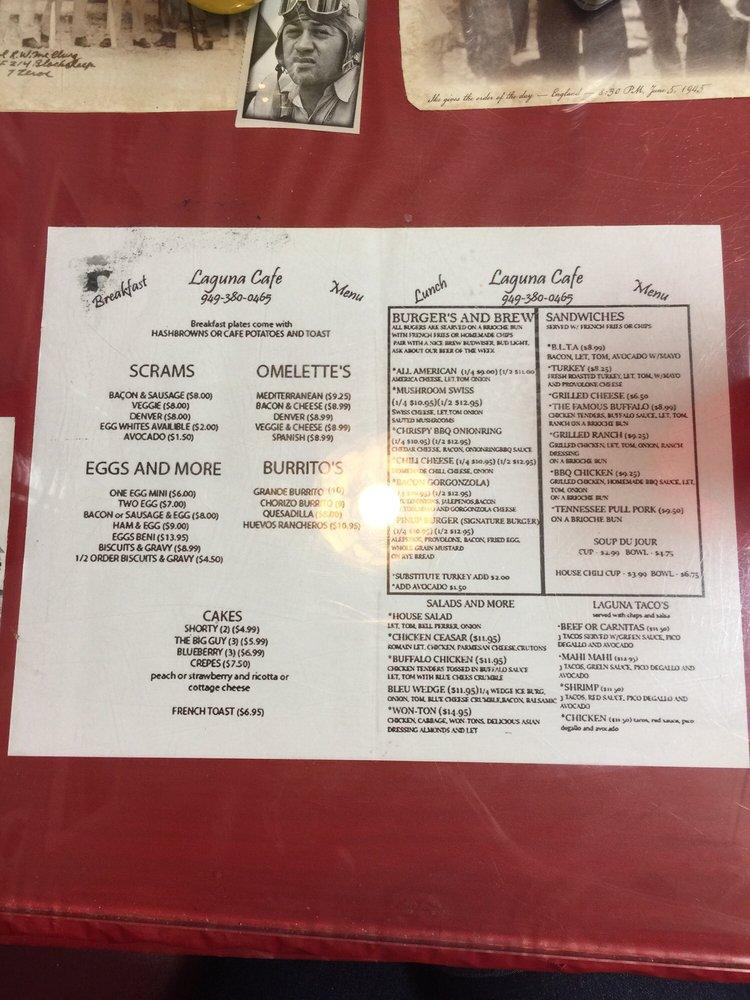 F 214 Blacksheep
He gives the order of the day — England — 8:30 P.M. June 5, 1945
Breakfast
Laguna Cafe
949-380-0465
Menu
Breakfast plates come with
HASHBROWNS OR CAFE POTATOES AND TOAST
SCRAMS
BACON & SAUSAGE ($8.00)
VEGGIE ($8.00)
DENVER ($8.00)
EGG WHITES AVAILIBLE ($2.00)
AVOCADO ($1.50)
OMELETTE'S
MEDITERRANEAN ($9.25)
BACON & CHEESE ($8.99)
DENVER ($8.99)
VEGGIE & CHEESE ($8.99)
SPANISH ($8.99)
EGGS AND MORE
ONE EGG MINI ($6.00)
TWO EGG ($7.00)
BACON or SAUSAGE & EGG ($8.00)
HAM & EGG ($9.00)
EGGS BENI ($13.95)
BISCUITS & GRAVY ($8.99)
1/2 ORDER BISCUITS & GRAVY ($4.50)
BURRITO'S
GRANDE BURRITO (10)
CHORIZO BURRITO (9)
QUESADILLA ($8.00)
HUEVOS RANCHEROS ($10.95)
CAKES
SHORTY (2) ($4.99)
THE BIG GUY (3) ($5.99)
BLUEBERRY (3) ($6.99)
CREPES ($7.50)
peach or strawberry and ricotta or
cottage cheese
FRENCH TOAST ($6.95)
Lunch
Laguna Cafe
949-380-0465
Menu
BURGER'S AND BREW
ALL BUGERS ARE SEARVED ON A BRIOCHE BUN
WITH FRENCH FRIES OR HOMEMADE CHIPS
PAIR WITH A NICE BREW BUDWISER, BUD LIGHT,
ASK ABOUT OUR BEER OF THE WEEK
*ALL AMERICAN (1/4 $9.00) (1/2 $11.00
AMERICA CHEESE, LET,TOM ONION
*MUSHROOM SWISS
(1/4 $10.95)(1/2 $12.95)
SWISS CHEESE, LET,TOM ONION
SAUTED MUSHROOMS
*CHRISPY BBQ ONIONRING
(1/4 $10.95) (1/2 $12.95)
CHEDAR CHEESE, RACON, ONIONRINGBBQ SAUCE
*CHILI CHEESE (1/4 $10.95) (1/2 $12.95)
HOMEMADE CHILI, CHEESE, ONION
*BACON GORGONZOLA)
(1/4 $10.95) (1/2 $12.95)
JALEPENOS,BACON
AND GORGONZOLA CHEESE
PINUP BURGER (SIGNATURE BURGER)
(1/4 $10.95) (1/2 $12.95)
ALEPENOS, PROVOLONE, BACON, FRIED EGG,
WHOLE GRAIN MUSTARD
ON RYE BREAD
*SUBSTITUTE TURKEY ADD $2.00
*ADD AVOCADO $1.50
SANDWICHES
SERVED W/ FRENCH FRIES OR CHIPS
*B.L.T.A ($8.99)
BACON, LET, TOM, AVOCADO W/MAYO
*TURKEY ($8.25)
FRESH ROASTED TURKEY, LET, TOM, W/MAYO
AND PROVOLONE CHEESE
*GRILLED CHEESE ($6.50
*THE FAMOUS BUFFALO ($8.99)
CHICKEN TENDERS, BUFFALO SAUCE, LET, TOM,
RANCH ON A BRIOCHE BUN
*GRILLED RANCH ($9.25)
GRILLED CHICKEN, LET, TOM, ONION, RANCH
DRESSING
ON A BRIOCHE BUN
*BBQ CHICKEN ($9.25)
GRILLED CHICKEN, HOMEMADE BBQ SAUCE, LET,
TOM, ONION
ON A BRIOCHE BUN
*TENNESSEE PULL PORK ($9.50)
ON A BRIOCHE BUN
SOUP DU JOUR
CUP - $2.99 BOWL - $4.75
HOUSE CHILI CUP - $3.99 BOWL - $6.75
SALADS AND MORE
*HOUSE SALAD
LET, TOM, BELL PEPPER, ONION
*CHICKEN CEASAR ($11.95)
ROMAIN LET, CHICKEN, PARMESAN CHEESE,CRUTONS
*BUFFALO CHICKEN ($11.95)
CHICKEN TENDERS TOSSED IN BUFFALO SAUCE
LET, TOM WITH BLUE CHEES CRUMBLE
BLEU WEDGE ($11.95)1/4 WEDGE ICE BURG,
ONION, TOM, BLUE CHEESE CRUMBLE,BACON, BALSAMIC
*WON-TON ($14.95)
CHICKEN, CABBAGE, WON-TONS, DELICIOUS ASIAN
DRESSING ALMONDS AND LET
LAGUNA TACO'S
served with chips and salsa
*BEEF OR CARNITAS ($11.50)
3 TACOS SERVED W/GREEN SAUCE, PICO
DEGALLO AND AVOCADO
*MAHI MAHI ($12.95)
3 TACOS, GREEN SAUCE, PICO DEGALLO AND
AVOCADO
*SHRIMP ($11.50)
3 TACOS, RED SAUCE, PICO DEGALLO AND
AVOCADO
*CHICKEN ($11.50) tacos, red sauce, pico
degallo and avocado